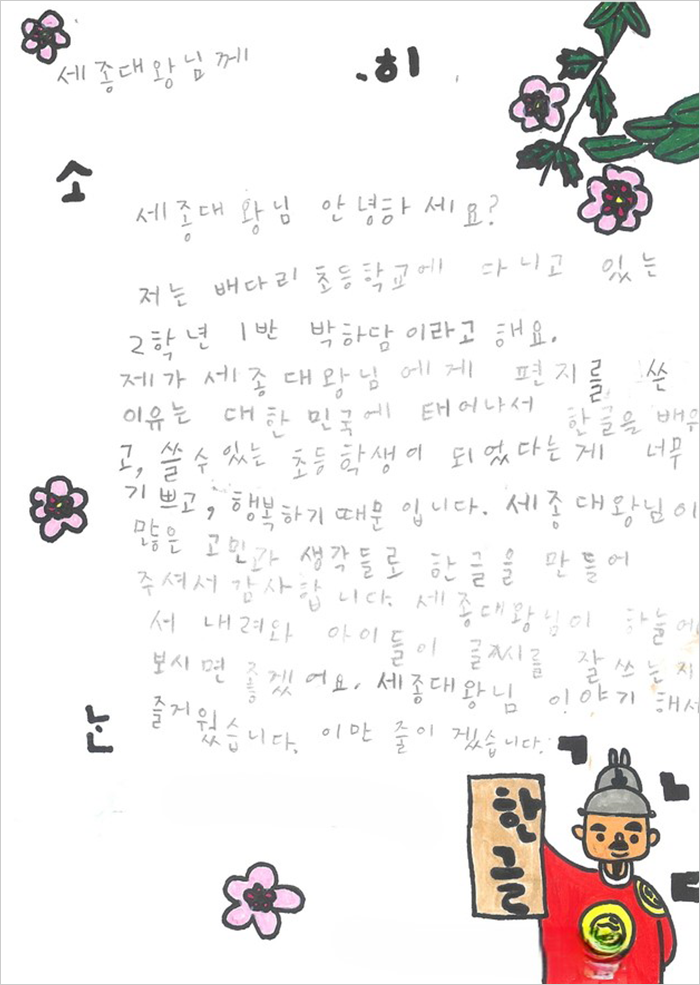 세종대왕님께
.히
소
세종대왕님 안녕하세요?
저는 배다리초등학교에 다니고 있는
2학년 1반 박하담이라고 해요.
제가 세종대왕님에게 편지를 쓴
이유는 대한민국에 태어나서 한글을 배우
고, 쓸 수 있는 초등학생이 되었다는게 너무
기쁘고, 행복하기 때문입니다. 세종대왕님이
많은 고민과 생각들로 한글을 만들어
주셔서 감사합니다. 세종대왕님이 하늘에
서 내려와 아이들이 글씨를 잘 쓰는지
보시면 좋겠어요. 세종대왕님 이야기해서
즐거웠습니다. 이만 줄이겠습니다.
눈
ㄱ
ㄴ
ㄷ
한글